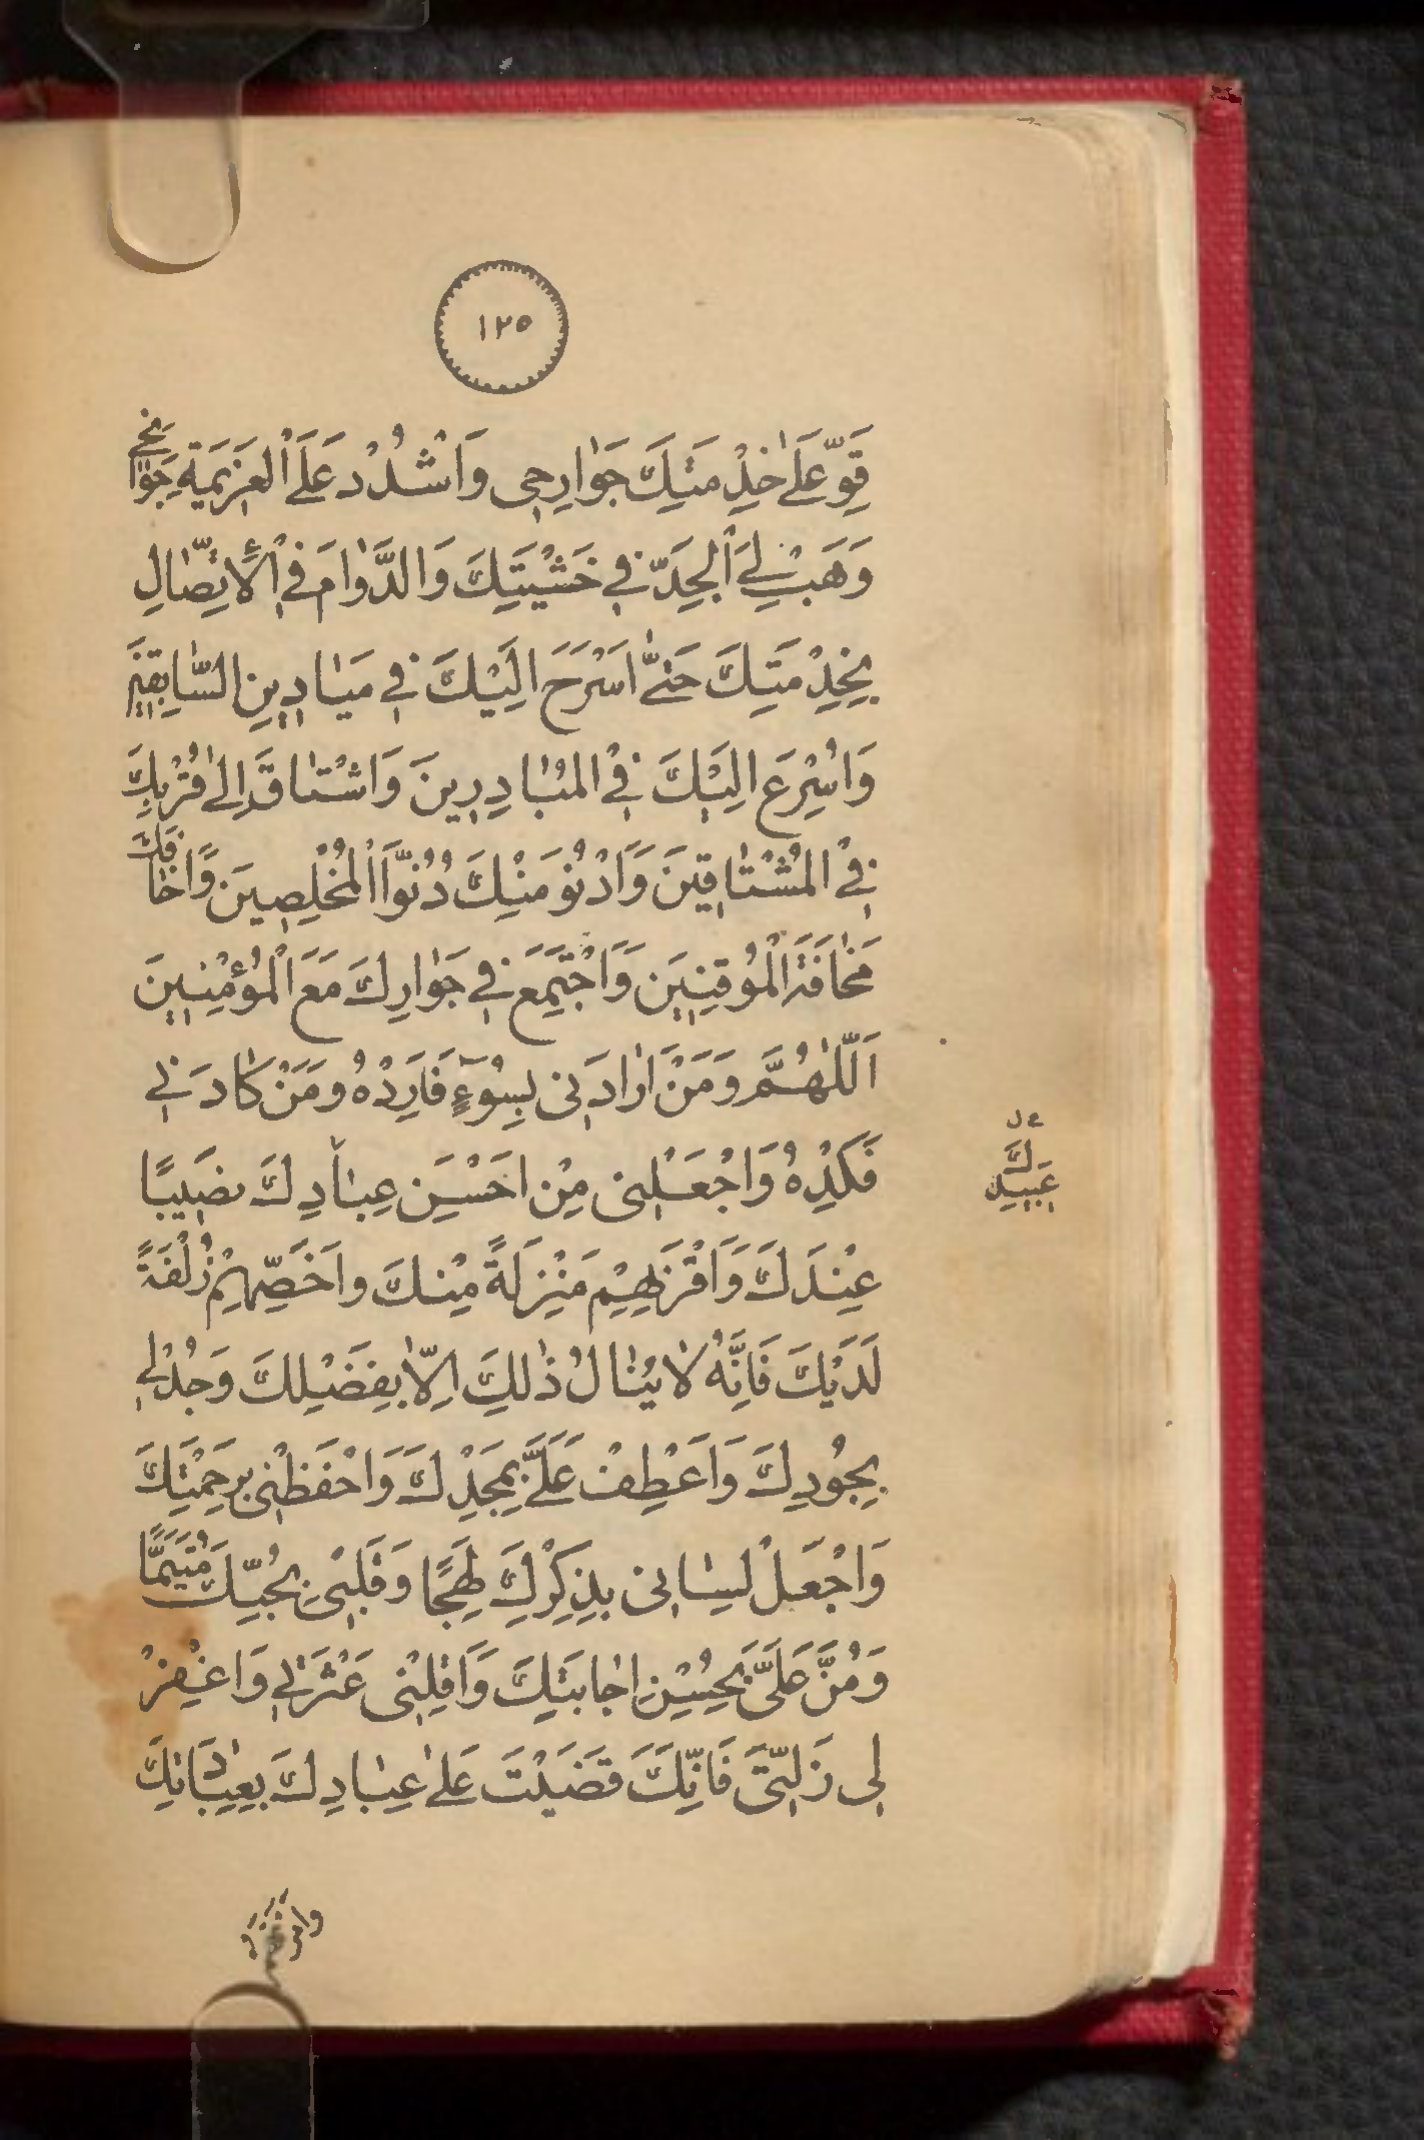 ١٢٥
قَوِّ عَلٰى خِدْمَتِكَ جَوٰارِحِى وَاشْدُدْ عَلَى الْعَزِيمَةِ جَوٰانِحِى
وَهَبْ لِىَ الْجِدَّ فِى خَشْيَتِكَ وَالدَّوٰامَ فِى الْاِتِّصٰالِ
بِخِدْمَتِكَ حَتّٰى اَسْرَحَ اِلَيْكَ فِى مَيٰادِينِ السّٰابِقِينَ
وَاُسْرِعَ اِلَيْكَ فِى الْمُبٰادِرِينَ وَاَشْتٰاقَ اِلٰى قُرْبِكَ
فِى الْمُشْتٰاقِينَ وَاَدْنُوَ مِنْكَ دُنُوَّ الْمُخْلِصِينَ وَاَخٰافَكَ
مَخٰافَةَ الْمُوقِنِينَ وَاَجْتَمِعَ فِى جَوٰارِكَ مَعَ الْمُؤْمِنِينَ
اَللّٰهُمَّ وَمَنْ اَرٰادَنِى بِسُوٓءٍ فَاَرِدْهُ وَمَنْ كٰادَنِى
فَكِدْهُ وَاجْعَلْنِى مِنْ اَحْسَنِ عِبٰادِكَ نَصِيبًا
عَبِيدِكَ
عِنْدَكَ وَاَقْرَبِهِمْ مَنْزِلَةً مِنْكَ وَاَخَصِّهِمْ زُلْفَةً
لَدَيْكَ فَاِنَّهُ لاٰ يُنٰالُ ذٰلِكَ اِلّاٰ بِفَضْلِكَ وَجُدْ لِى
بِجُودِكَ وَاعْطِفْ عَلَىَّ بِمَجْدِكَ وَاحْفَظْنِى بِرَحْمَتِكَ
وَاجْعَلْ لِسٰانِى بِذِكْرِكَ لَهِجًا وَقَلْبِى بِحُبِّكَ مُتَيَّمًا
وَمُنَّ عَلَىَّ بِحُسْنِ اِجٰابَتِكَ وَاَقِلْنِى عَثْرَتِى وَاغْفِرْ
لِى زَلَّتِى فَاِنَّكَ قَضَيْتَ عَلٰى عِبٰادِكَ بِعِبٰادَتِكَ